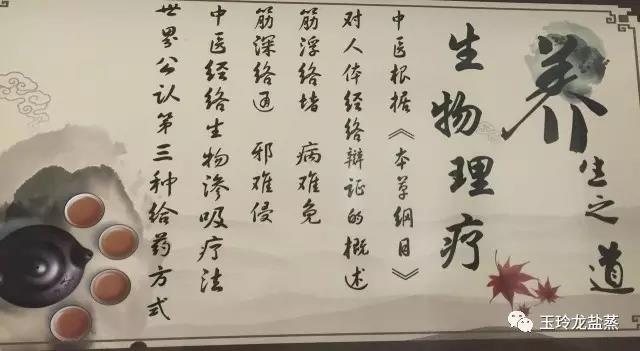 养生之道
生物理疗
中医根据《本草纲目》
对人体经络辩证的概述
筋浮络堵 病难免
筋深络通 邪难侵
中医经络生物渗吸疗法
世界公认第三种给药方式
玉玲龙盐蒸